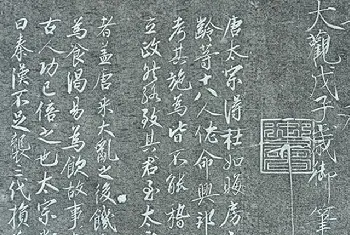 大觀戊子歲御筆
唐太宗得杜如晦房
齡等十八人佐命興邦
考其施為皆不能
立政致其君至太
者蓋唐承大亂之後饑
為食渴易為飲故事
古人功已倍之也太宗
曰秦漢不足襲三代損